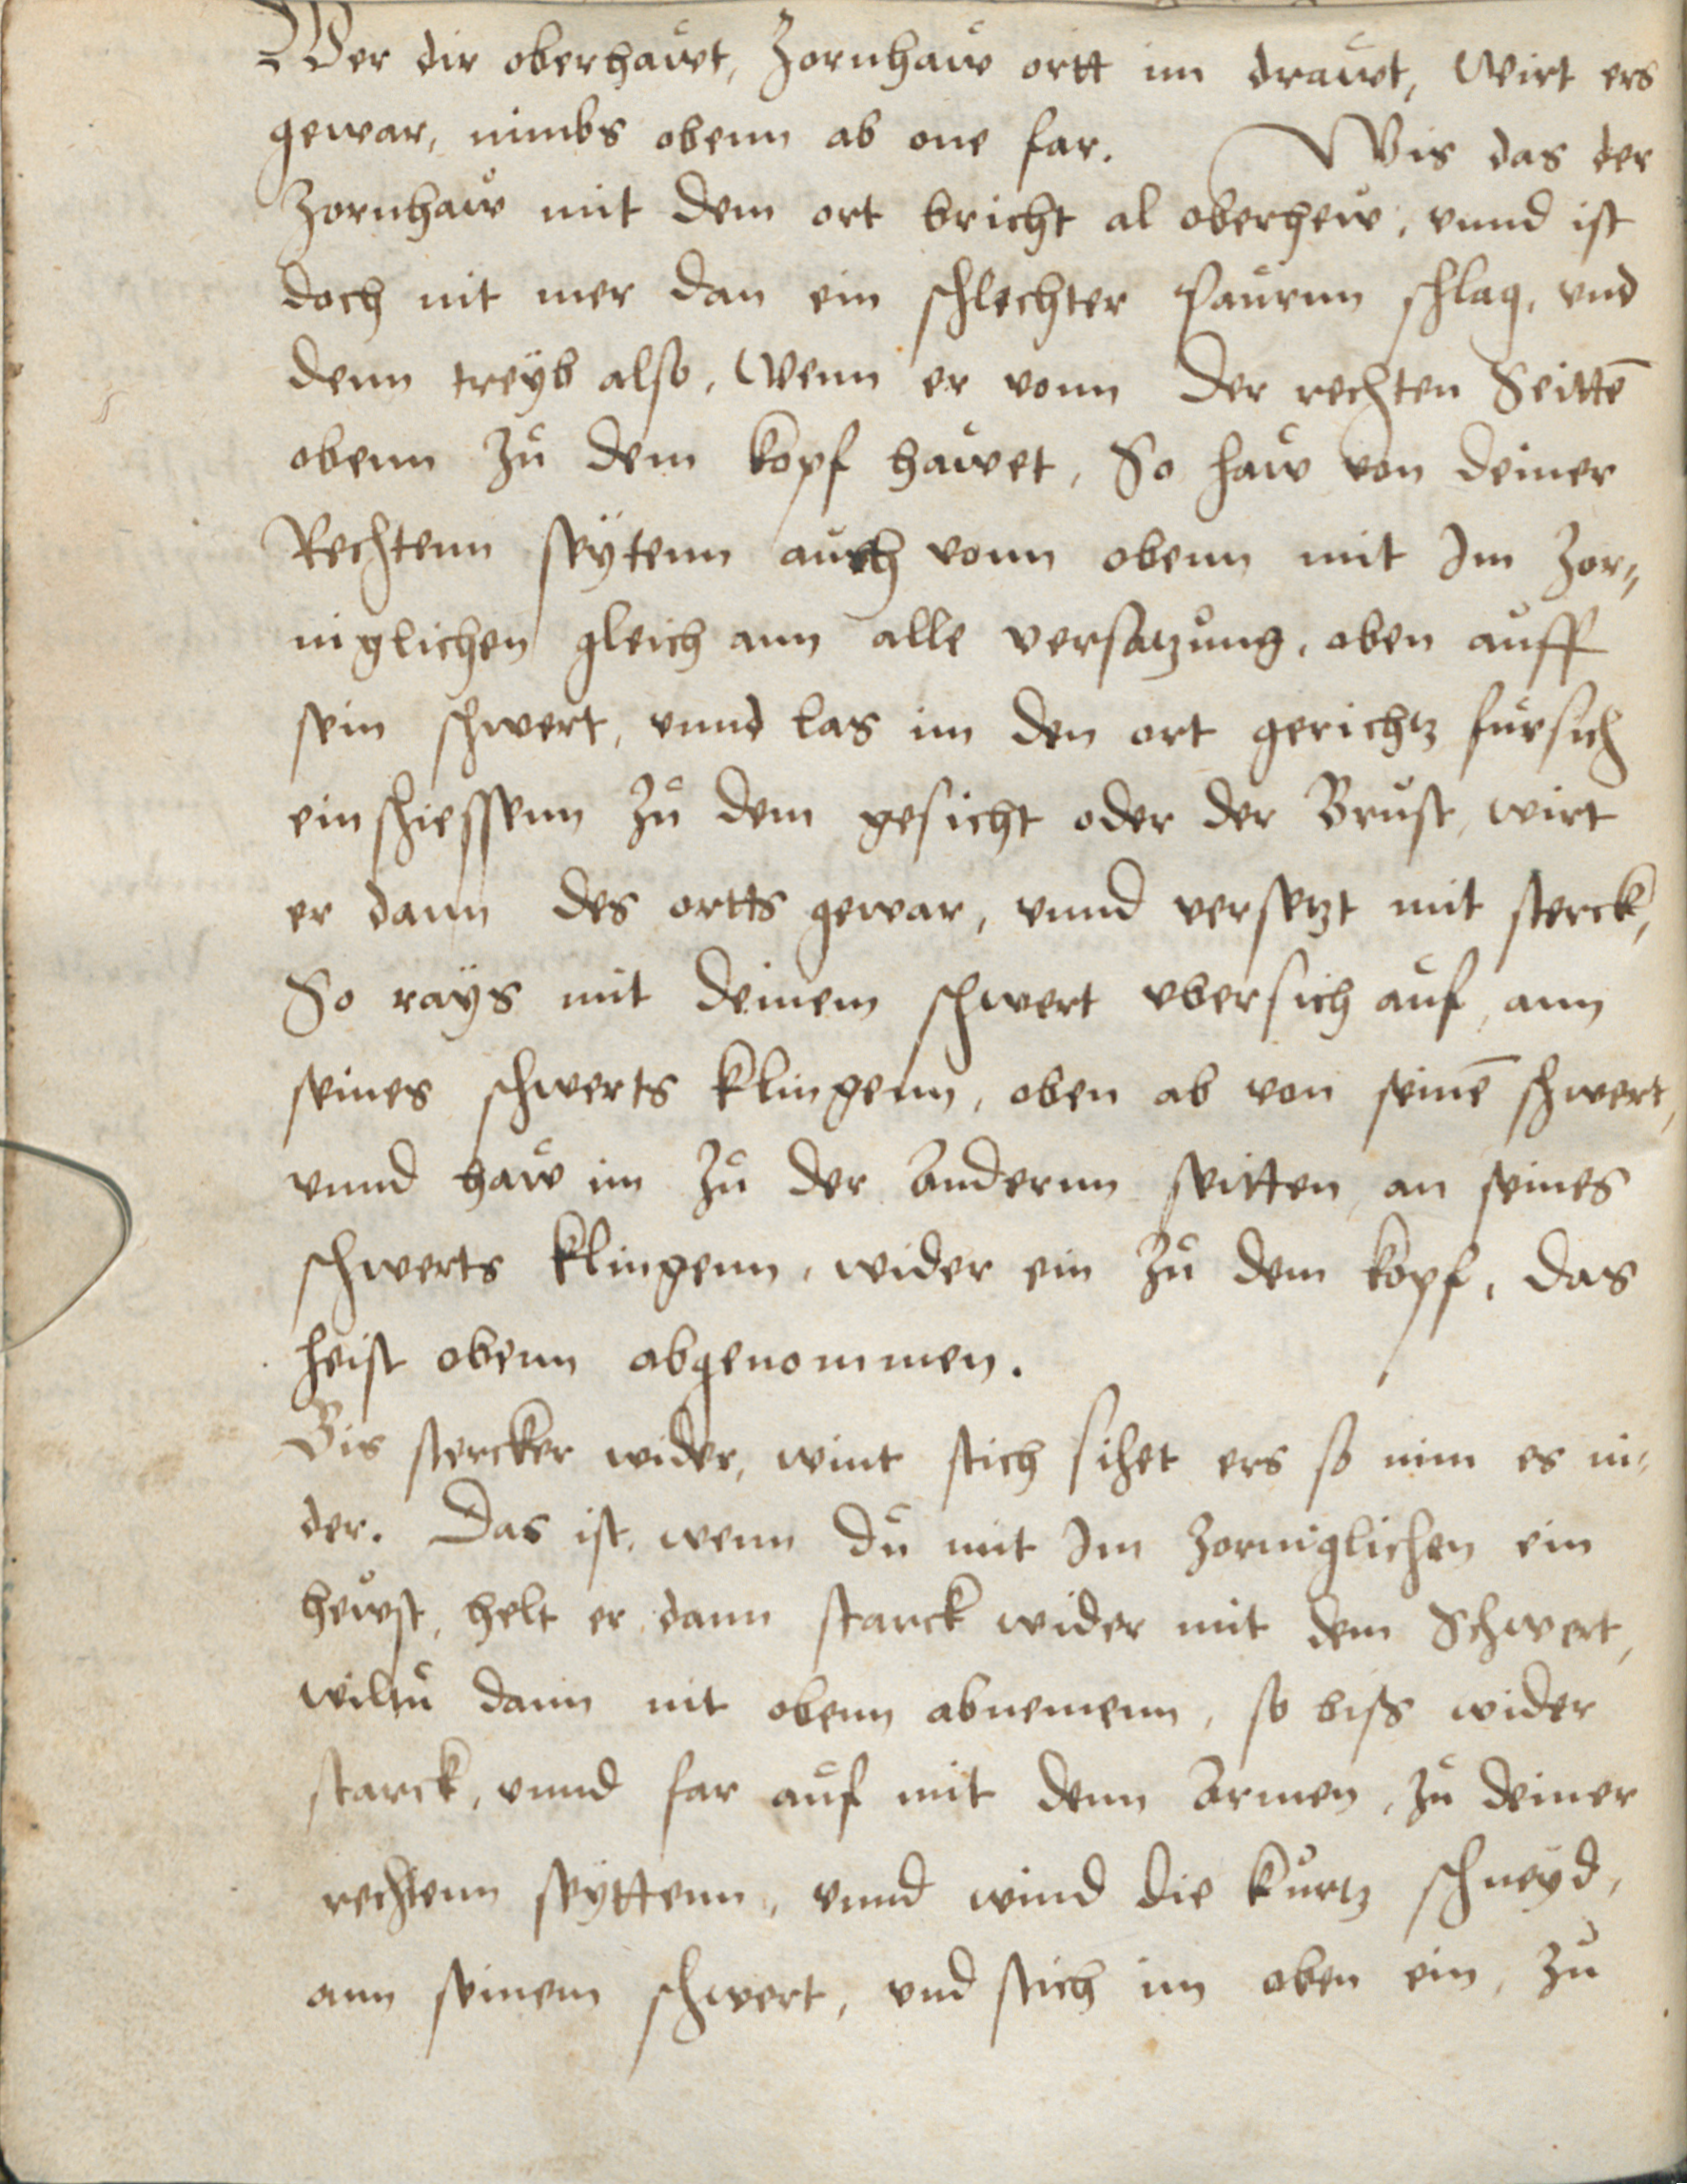 Wer dir oberhaẘt, Zornhaẘ ortt im draẘt, Wirt ers
gewar, nimbs obenn ab one far. Wis das der
Zornhaẘ mit dem ort bricht al oberheẘ, vnnd ist
doch nit mer dan ein schlechter paůrnn schlag, vnd
denn treÿb also, Wenn er vonn der rechten Seittē
obenn Zů dem kopf haẘet, So haẘ von deiner
Rechtenn seÿtenn aůch vonn obenn mit Im Zor⸗
niglichen gleich ann alle versatzůng, oben aůff
sein schwert, vnnd las im den ort gerichtz fůrsich
einschiessenn Zů dem gesicht oder der Brůst, wirt
er dann des ortts gewar, vnnd versetzt mit sterck,
So raÿs mit deinem schwert vbersich aůf, ann
seines schwerts klingenn, oben ab von seinē schwert,
vnnd haẘ im Zů der Andernn seitten, an seines
schwerts klingenn, wider ein Zů dem kopf, das
heist obenn abgenommen.
Bis stercker wider, wint stich sihet ers so nim es ni⸗
der. Das ist, wenn dů mit Im Zorniglichen ein
heẘst, helt er dann starck wider mit dem Schwert,
wiltů dann nit obenn abnemenn, so biss wider
starck, vnnd far aůf mit denn Armen, zů deiner
rechtenn seÿttenn, vnnd wind die kůrtz schneÿd,
ann seinem schwert, vnd stich im oben ein, Zů